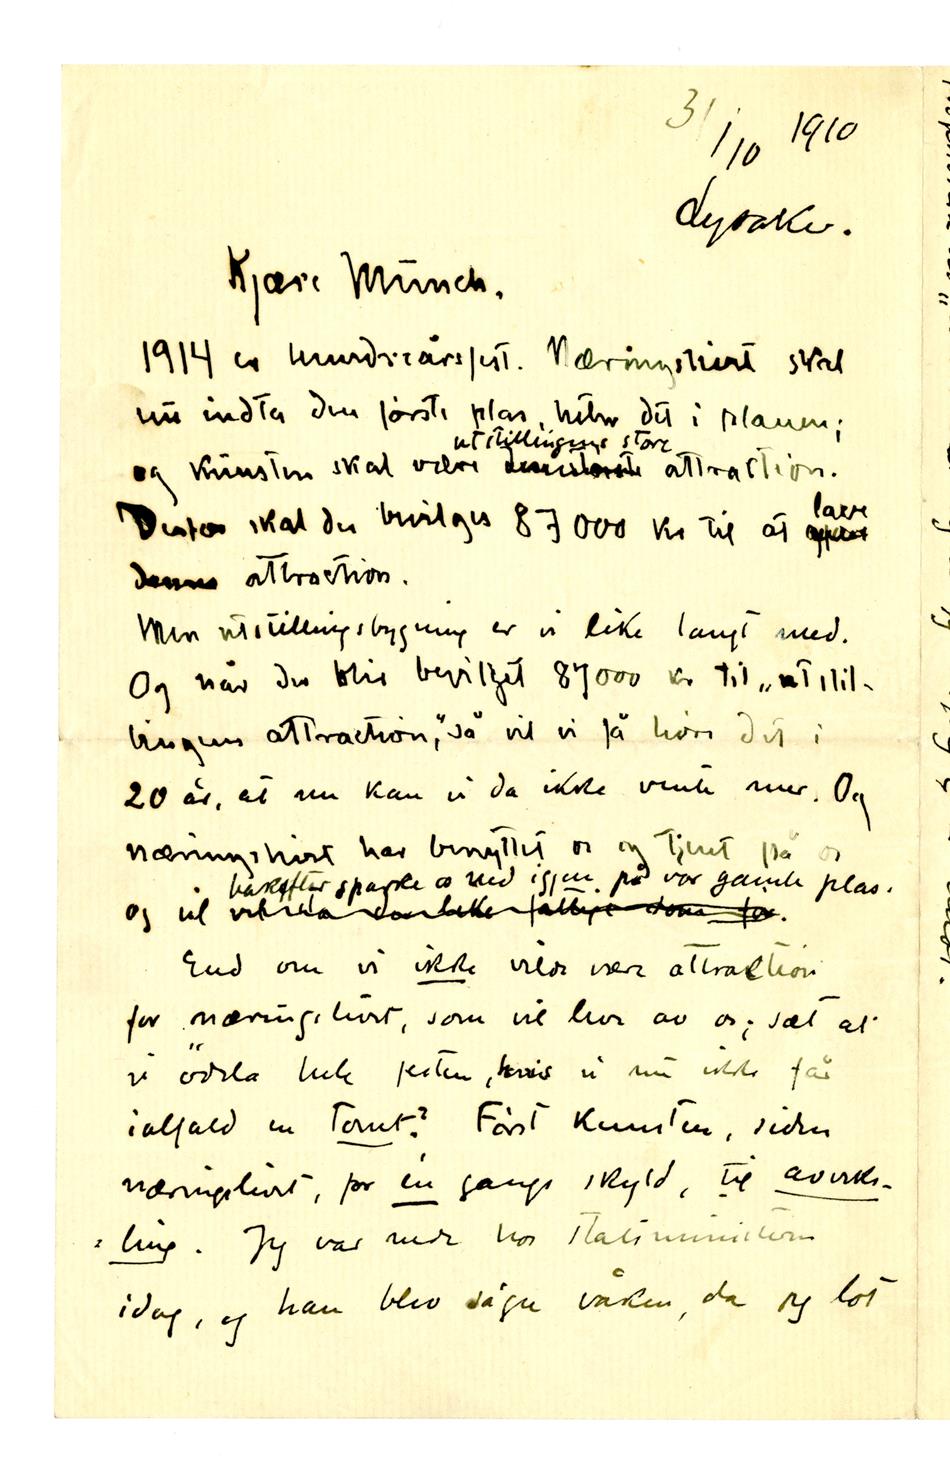 31/10 1910
Lysaker.
Kjære Münch.
1914 er hundreårsfest. Næringslivet skal
nu indta den förste plas, heter det i planen;
utstillingens store
og kunsten skal være attraction.
Dertor skal der bevilges 87000 kr til at lave
denne attraction.
Men utstillingsbygning er vi like langt med.
Og når der blir bevilget 87000 kr til „utstil-
lingens attraction,“ så vil vi få höre det i
20 år, at nu kan vi da ikke vente mer. Og
næringslivet har benyttet os og tjent på os
bakefter sparke os ned igjen på vor gamle plas.
og vil
End om vi ikke vilde være attraction
for næringslivet, som vil leve av os; sæt at
vi ödela hele festen, hvis vi nu ikke får
ialfald en tomt? Först kunsten, siden
næringslivet, for en gangs skyld, til avveks-
ling. Jeg var nede hos statsministeren
idag, og han blev våken, da jeg lot